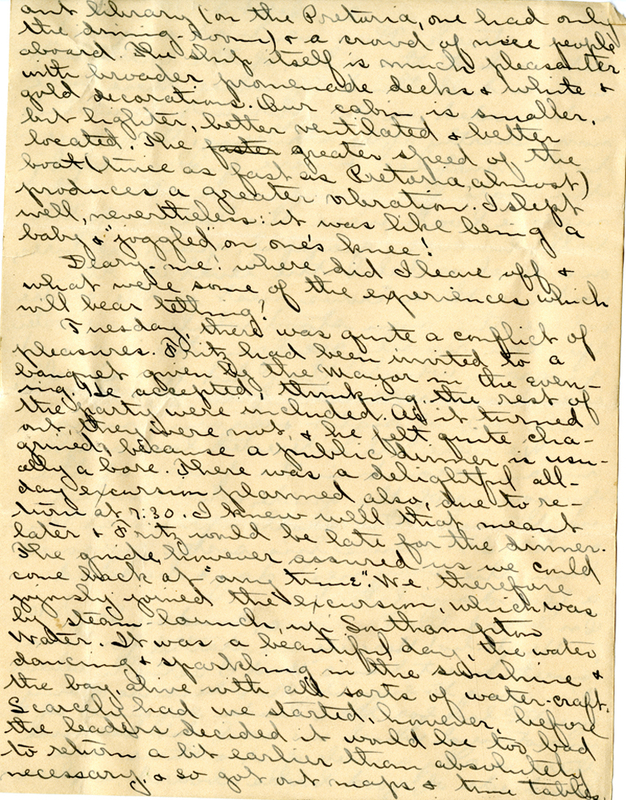 ant library (on the Pretoria, one had only
the dining-room) & a crowd of nice people
aboard. The ship itself is much pleasanter
with broader promenade decks & white &
gold decorations. Our cabin is smaller,
but lighter, better ventilated & better
located. The faster greater speed of the
boat (twice as fast as Pretoria, almost)
produces a greater vibration. I slept
well, nevertheless: it was like being a
baby & "joggled" on one's knee!
Deary me! where did I leave off &
what were some of the experiences which
will bear telling?
Tuesday, there was quite a conflict of
pleasures. Fritz had been invited to a
banquet given by the Mayor in the even-
ing. He accepted, thinking the rest of
the party were included. As it turned
out, they were not, & he felt quite cha-
grined, because a public dinner is usu-
ally a bore. There was a delightful all-
day excursion planned also, due to re-
turn at 7:30. I knew well that meant
later & Fritz would be late for the dinner.
The guide, however assured us we could
come back at "any time". We therefore
joyously joined the excursion, which was
by steam-launch, up Southampton
Water. It was a beautiful day, the water
dancing & sparkling in the sunshine &
the bay, alive with all sorts of water-craft.
Scarcely had we started, however, before
the leaders decided it would be too bad
to return a bit earlier than absolutely
necessary, & so got out maps & time tables,